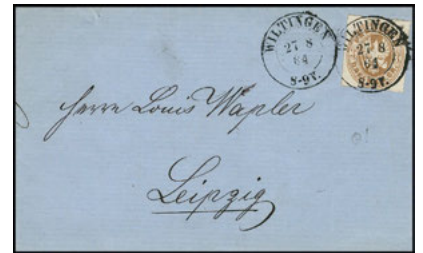 WILTINGEN
27 8
64
8-9V.
WILTINGEN
27 8
64
8-9V.
Herrn Louis Wapler
Leipzig